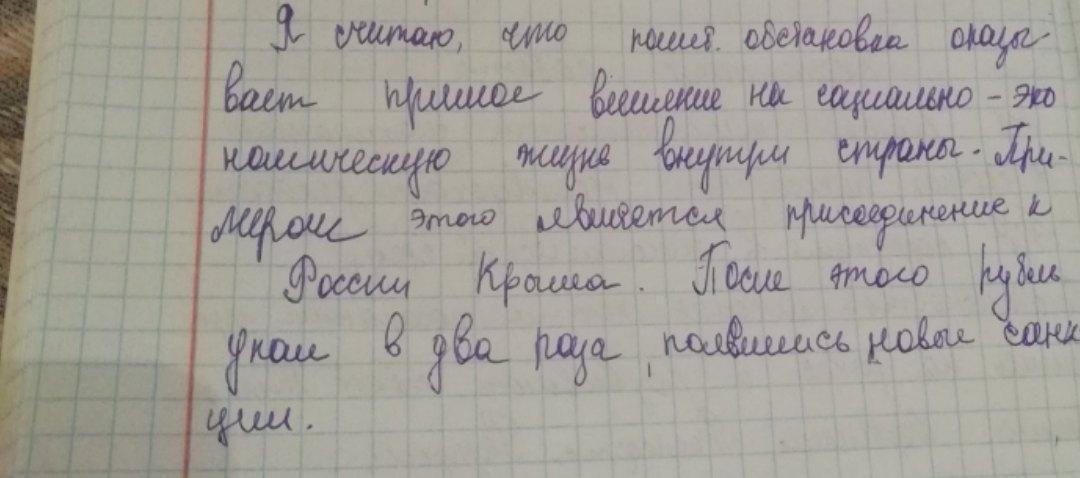 Я считаю, что полит. обстановка оказы-
вает прямое влияние на социально-эко
номическую жизнь внутри страны. При-
мером этого является присоединение к
России Крыма. После этого рубль
упал в два раза, появились новые санк
ции.